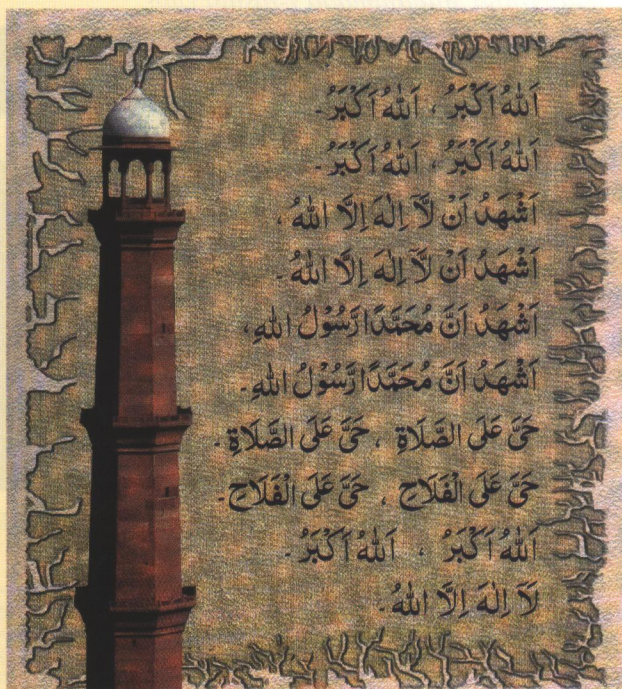 اَللّٰهُ اَكْبَرُ ، اَللّٰهُ اَكْبَرُ۔
اَللّٰهُ اَكْبَرُ ، اَللّٰهُ اَكْبَرُ۔
اَشْهَدُ اَنْ لَّآ اِلٰهَ اِلَّا اللّٰهُ ،
اَشْهَدُ اَنْ لَّآ اِلٰهَ اِلَّا اللّٰهُ۔
اَشْهَدُ اَنَّ مُحَمَّدًا رَّسُوْلُ اللّٰهِ ،
اَشْهَدُ اَنَّ مُحَمَّدًا رَّسُوْلُ اللّٰهِ۔
حَىَّ عَلَى الصَّلَاةِ ، حَىَّ عَلَى الصَّلَاةِ۔
حَىَّ عَلَى الْفَلَاحِ ، حَىَّ عَلَى الْفَلَاحِ۔
اَللّٰهُ اَكْبَرُ ، اَللّٰهُ اَكْبَرُ۔
لَآ اِلٰهَ اِلَّا اللّٰهُ۔